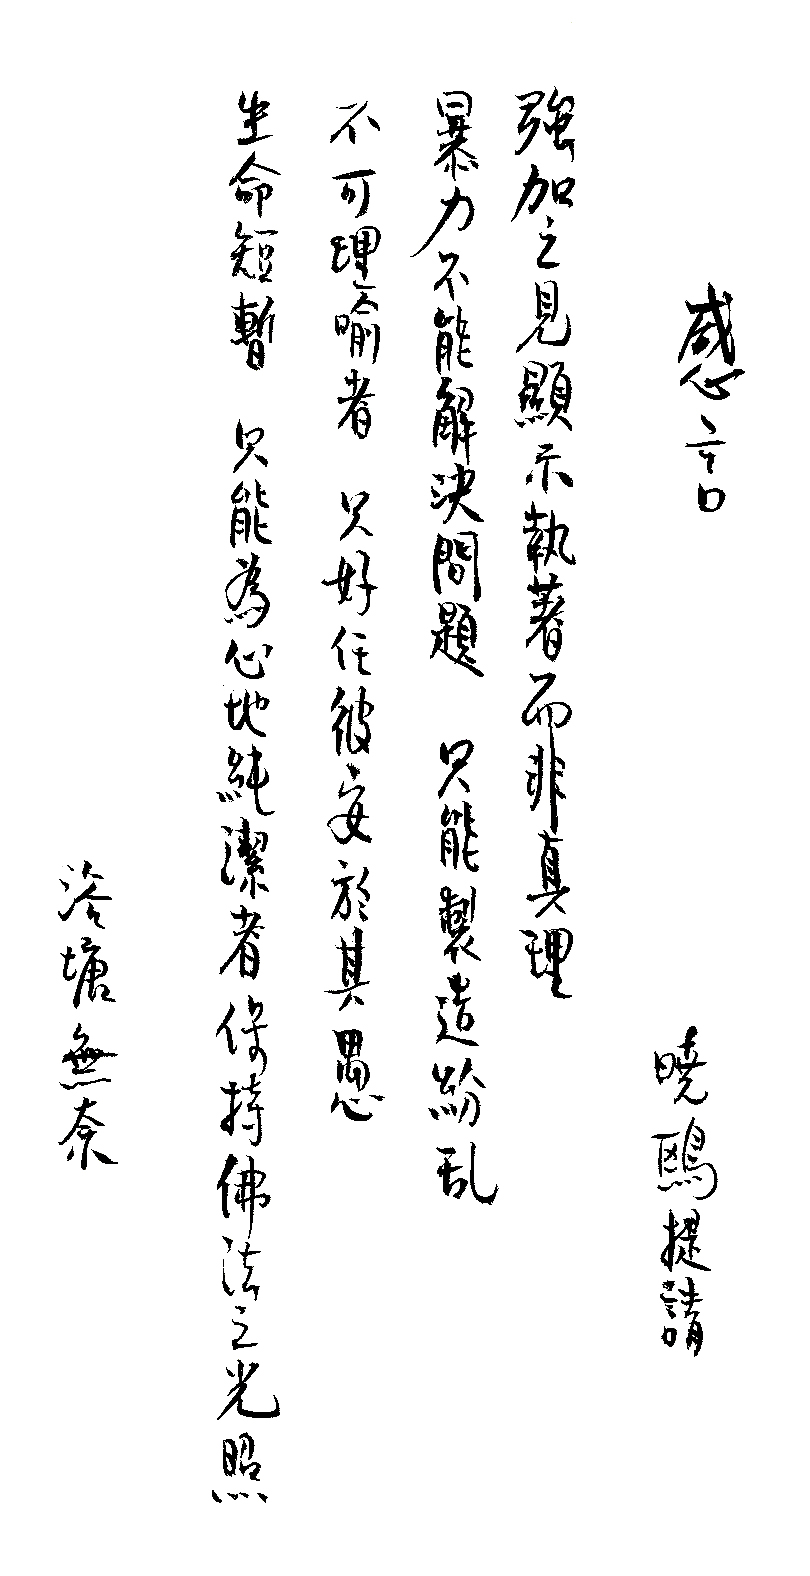 感言
曉鷗提請
強加之見顯示執著而非真理
暴力不能解決問題　只能製造紛乱
不可理喻者　只好任彼安於其愚
生命短暫　只能為心地純潔者保持佛法之光照
塘無奈